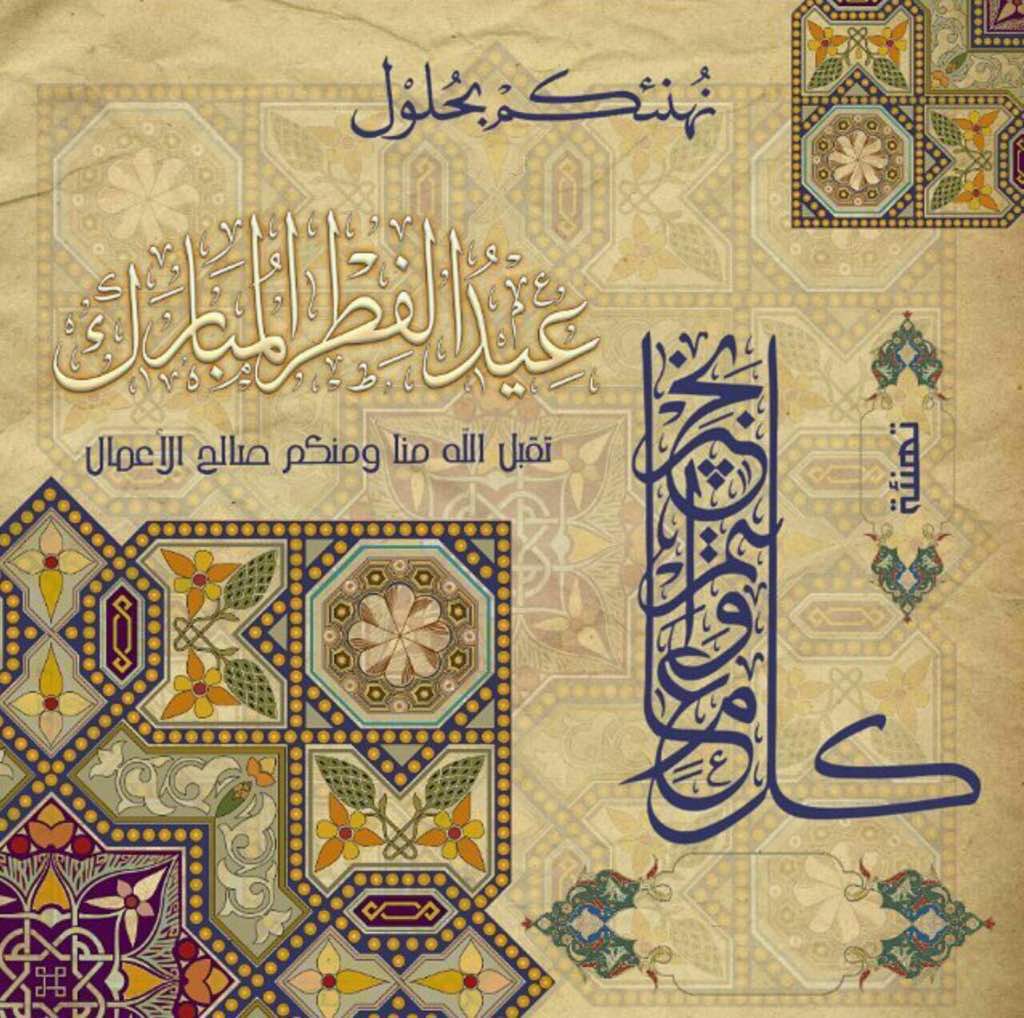 نُهنئكمْ بحُلوْل
عِيْدُ الفِطْرِ المُبَارَكْ
تقبل الله منا ومنكم صالح الأعمال
كل عام وأنتم بخير
تهنئة